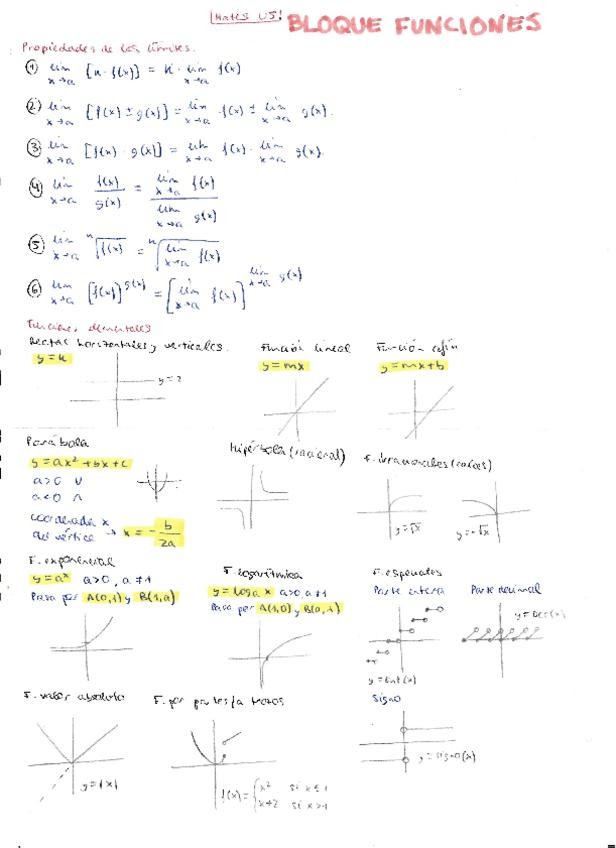 Mates U5! BLOQUE FUNCIONES
Propiedades de los límites.
① lim x→a [k · f(x)] = k · lim x→a f(x)
② lim x→a [f(x) ± g(x)] = lim x→a f(x) ± lim x→a g(x).
③ lim x→a [f(x) · g(x)] = lim x→a f(x) · lim x→a g(x).
④ lim x→a f(x)/g(x) = lim x→a f(x) / lim x→a g(x)
⑤ lim x→a ⁿ√f(x) = ⁿ√lim x→a f(x)
⑥ lim x→a [f(x)]^g(x) = [lim x→a f(x)]^lim x→a g(x)
Funciones elementales
Rectas horizontales y verticales.
y = k
y = 2
Función lineal
y = mx
Función afín
y = mx + b
Parábola
y = ax² + bx + c
a > 0 ∪
a < 0 ∩
coordenada x
del vértice → x = - b/2a
Hipérbola (racional)
F. irracionales (raíces)
y = √x
y = √-x
F. exponencial
y = aˣ a > 0, a ≠ 1
Pasa por A(0,1) y B(1,a)
F. logarítmica
y = log a x a > 0 a ≠ 1
Pasa por A(1,0) y B(a,1)
F. especiales
Parte entera
y = Ent(x)
Parte decimal
y = Dec(x)
F. valor absoluto
y = |x|
F. por partes/a trozos
f(x) = { x² si x ≤ 1
x + 2 si x > 1
Signo
y = signo(x)